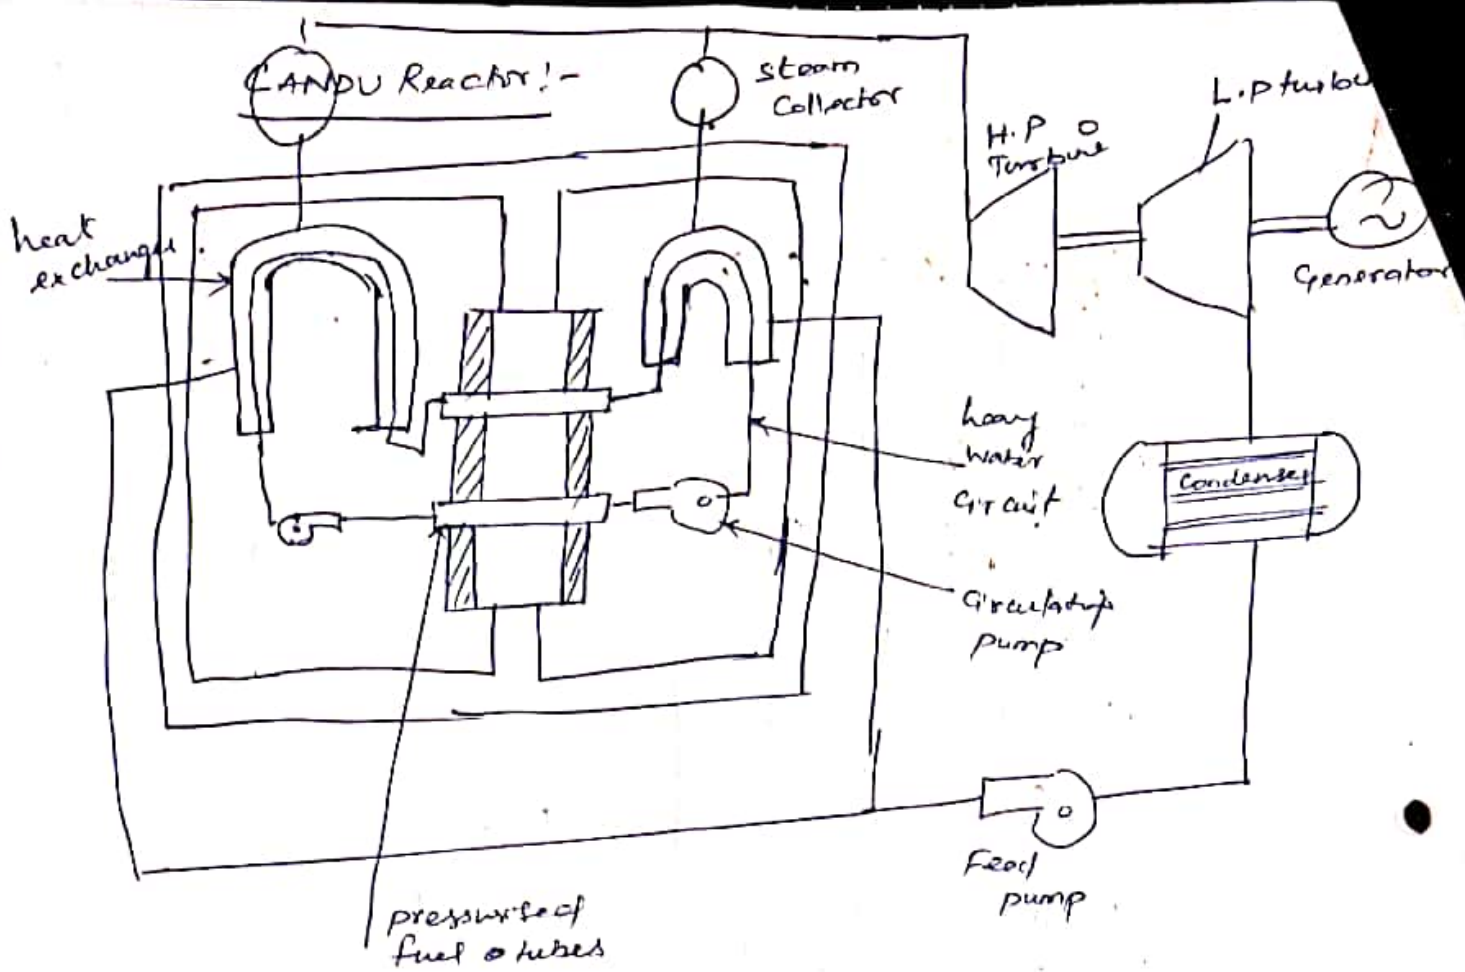 CANDU Reactor:-
Steam
Collector
H.P
Turbine
L.P turbi
Generator
heat
exchange
heavy
water
Circuit
Condenser
Circulating
pump
Feed
pump
pressurised
fuel tubes